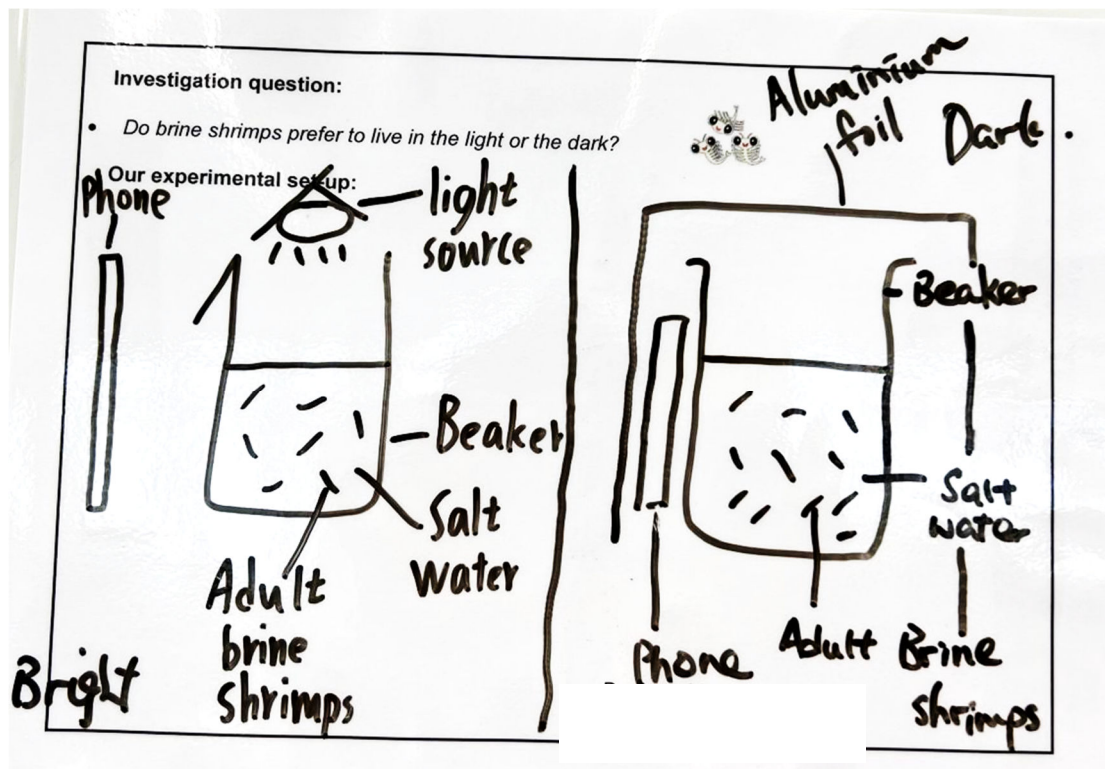 Investigation question:
• Do brine shrimps prefer to live in the light or the dark?
Our experimental set-up:
Phone
light
source
Beaker
Salt
water
Adult
brine
shrimps
Bright
Aluminium
foil
Dark.
Beaker
Salt
water
Phone
Adult Brine
shrimps